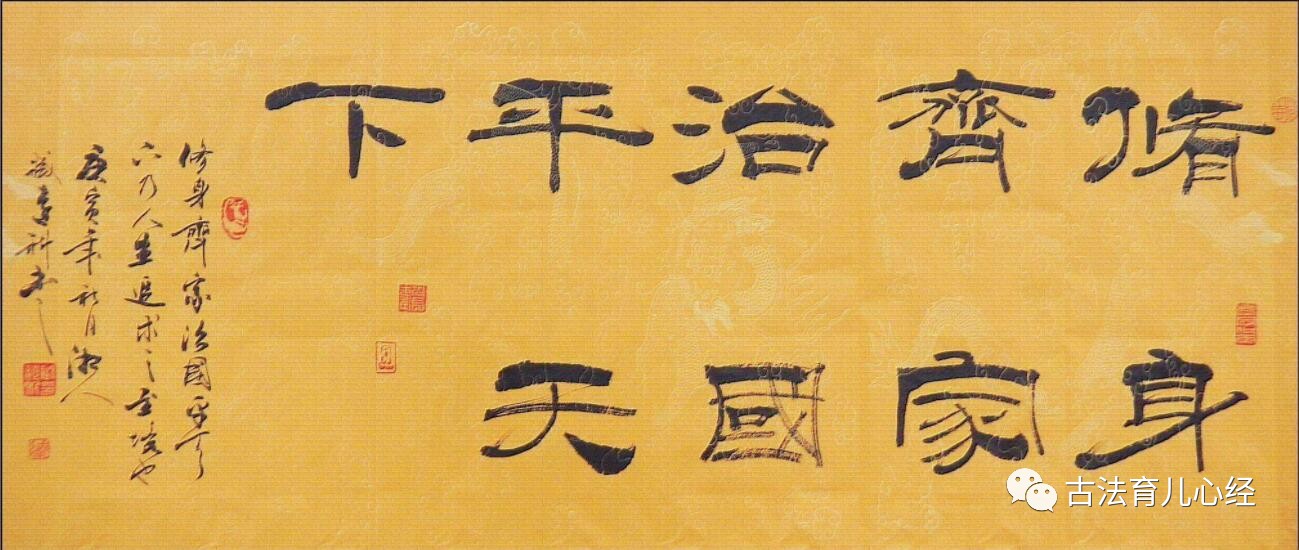 脩身
齊家
治國
平天
下
修身齊家治國平天
下乃人生追求之至境也
庚寅年秋月湘人
古法育儿心经